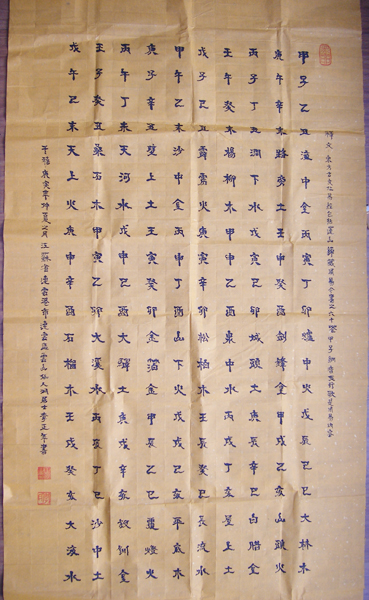 釋文 東方古文化易經包括連山歸藏周易
甲子乙丑海中金丙寅丁卯爐中火戊辰己巳大林木
庚午辛未路旁土壬申癸酉劍鋒金甲戌乙亥山頭火
丙子丁丑澗下水戊寅己卯城頭土庚辰辛巳白臘金
壬午癸未楊柳木甲申乙酉泉中水丙戌丁亥屋上土
戊子己丑霹靂火庚寅辛卯松柏木壬辰癸巳長流水
甲午乙未沙中金丙申丁酉山下火戊戌己亥平底木
庚子辛丑壁上土壬寅癸卯金箔金甲辰乙巳覆燈火
丙午丁未天河水戊申己酉大驛土庚戌辛亥釵釧金
壬子癸丑桑石木甲寅乙卯大溪水丙辰丁巳沙中土
戊午己未天上火庚申辛酉石榴木壬戌癸亥大海水
庚寅年仲夏之月江蘇省連雲港市連雲區雲山居士李正年書